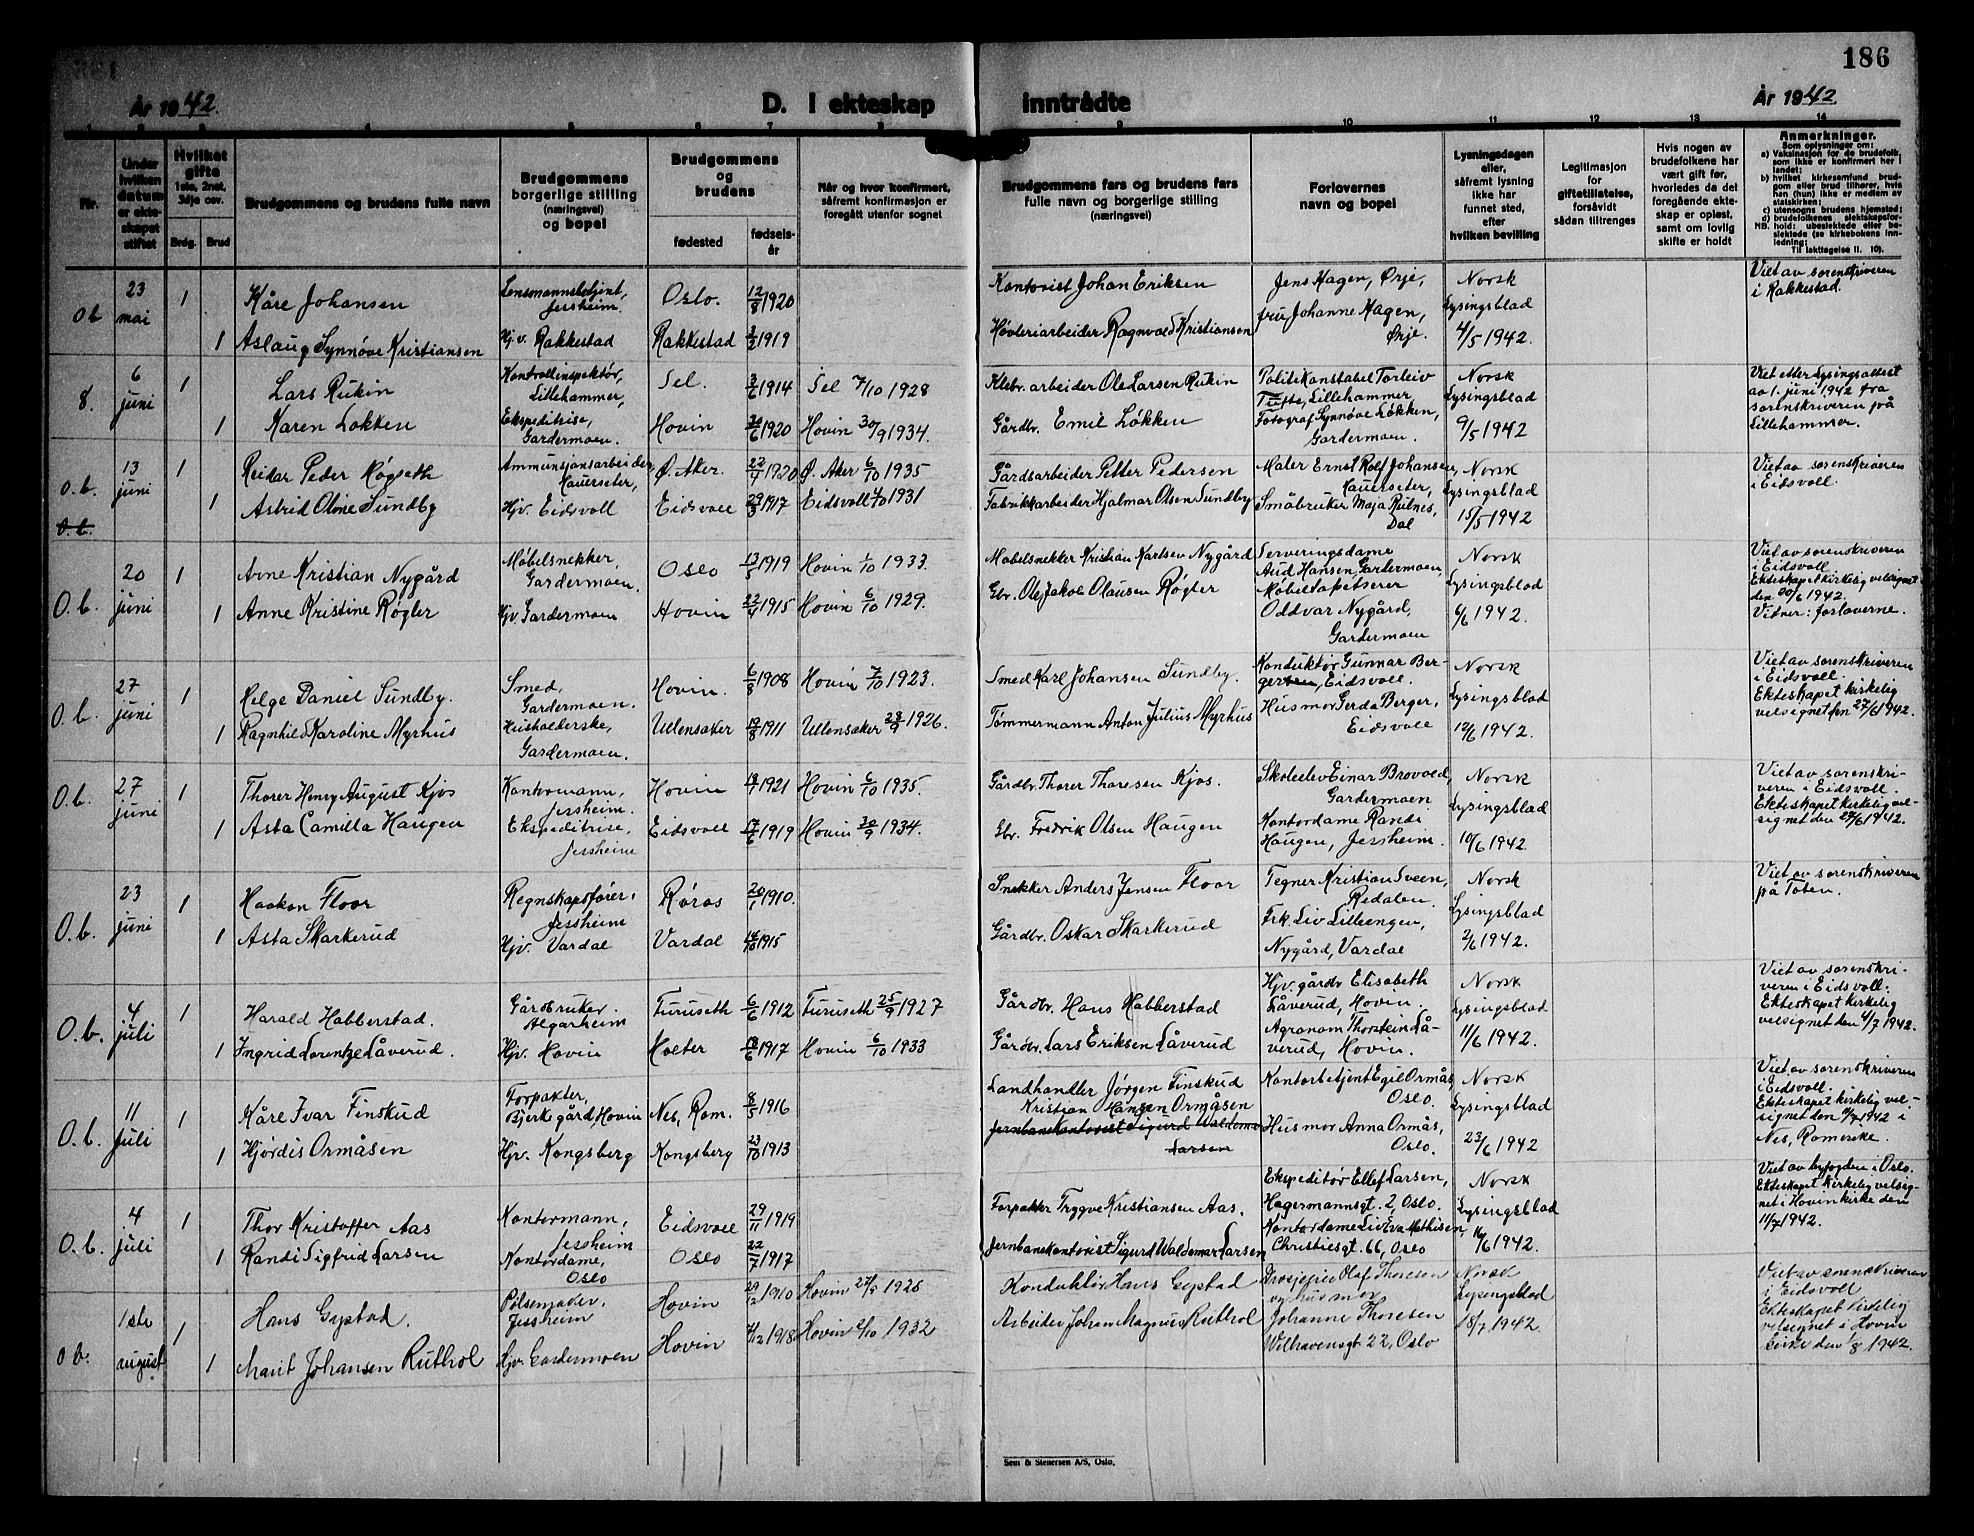 186
År 1942.
D. I ekteskap inntrådte
År 1942.
1 2 3 4 5 6 7 8 9 10 11 12 13 14
Nr.
Under
hvilken
datum
er ekte-
skapet
stiftet
Hvilket
gifte
1ste, 2net,
3dje osv.
Brdg.
Brud
Brudgommens og brudens fulle navn
Brudgommens
borgerlige stilling
(næringsvei)
og bopel
Brudgommens
og
brudens
fødested
fødsels-
år
Når og hvor konfirmert,
såfremt konfirmasjon er
foregått utenfor sognet
Brudgommens fars og brudens fars
fulle navn og borgerlige stilling
(næringsvei)
Forlovernes
navn og bopel
Lysningsdagen
eller,
såfremt lysning
ikke har
funnet sted,
efter
hvilken bevilling
Legitimasjon
for
giftetillatelse,
forsåvidt
sådan tiltrenges
Hvis nogen av
brudefolkene har
vært gift før,
hvorledes da det
foregående ekte-
skap er opløst,
samt om lovlig
skifte er holdt
Anmerkninger.
Som oplysninger om:
a) Vaksinasjon for de brudefolk,
som ikke er konfirmert her
i landet;
b) hvilket kirkesamfund brud-
gom eller brud tilhører, hvis
han (hun) ikke er medlem av
statskirken;
c) utensogns brudens hjemsted;
d) brudefolkenes slektskapsfor-
hold: ubeslektede eller be-
slektede (se kirkebokens inn-
ledning;
NB.
Til iakttagelse II. 10).
o b
23
mai
1
Kåre Johansen
Lensmannsbetjent,
Jessheim.
Oslo.
12/8 1920
Kontorist Johan Eriksen
Jens Hagen, Ørje,
fru Johanne Hagen,
Ørje.
Norsk
Lysingsblad
4/5 1942.
Viet av sorenskriveren
i Rakkestad.
1
Aslaug Synnøve Kristiansen
Hj.v. Rakkestad
Rakkestad
3/2 1919
Høvleriarbeider Ragnvald Kristiansen
8.
6
juni
1
Lars Rukin
Kontrollinspektør,
Lillehammer,
Sel.
3/6 1914
Sel 7/10 1928
Klebr. arbeider Ole Larsen Rukin
Politikonstabel Torleiv
Tufte, Lillehammer
Fotograf Synnøve Løkken,
Gardermoen.
Norsk
Lysingsblad
9/5 1942
Viet etter lysingsattest
av 1. juni 1942 fra
sorenskriveren på
Lillehammer.
1
Karen Løkken
Ekspeditrise,
Gardermoen.
Hovin
30/6 1920
Hovin 30/9 1934.
Gårdbr. Emil Løkken
o.b.
13
juni
1
Reidar Peder Høgseth
Ammunsjonsarbeider,
Hauerseter,
Ø. Aker.
22/9 1920
Ø. Aker 6/10 1935
Gårdsarbeider Petter Pedersen
Maler Ernst Rolf Johansen,
Hauerseter,
Småbruker Maja Rulnes,
Dal
Norsk
Lysingsblad
15/5 1942
Viet av sorenskriveren
i Eidsvoll.
1
Astrid Oline Sundby
Hjv. Eidsvoll
Eidsvoll
29/3 1917
Eidsvoll 4/10 1931
Fabrikkarbeider Hjalmar Olsen Sundby
o.b.
O.b.
20
juni
1
Arne Kristian Nygård
Møbelsnekker,
Gardermoen.
Oslo
13/5 1919
Hovin 1/10 1933.
Møbelsnekker Kristian Karlsen Nygård
Serveringsdame
Aud Hansen, Gardermoen,
Møbeltapetserer
Oddvar Nygård,
Gardermoen
Norsk
Lysingsblad
6/6 1942.
Viet av sorenskriveren
i Eidsvoll.
Ekteskapet kirkelig velsignet
den 20/6 1942.
Vitner: forloverne.
1
Anne Kristine Røgler
Hjv. Gardermoen
Hovin
22/4 1915
Hovin 6/10 1929.
Gbr. Ole Jakob Olausen Røgler
O.b.
27
juni
1
Helge Daniel Sundby.
Smed,
Gardermoen.
Hovin.
6/8 1908
Hovin 7/10 1923.
Smed Karl Johansen Sundby.
Konduktør Gunnar Ber-
ger, Eidsvoll.
Husmor Gerda Berger,
Eidsvoll
Norsk
Lysingsblad
12/6 1942.
Viet av sorenskriveren
i Eidsvoll.
Ekteskapet kirkelig
velsignet den 27/6 1942.
1
Ragnhild Karoline Myrhus
Husholderske,
Gardermoen.
Ullensaker
12/8 1911
Ullensaker 28/9 1926.
Tømmermann Anton Julius Myrhus
O.b.
27
juni
1
Thorer Henry August Kjos
Kontormann,
Jessheim.
Hovin
1921
Hovin 6/10 1935.
Gårdbr. Thorer Thoresen Kjos.
Skoleelev Einar Brovold,
Gardermoen
Kontordame Randi
Haugen, Jessheim.
Norsk
Lysingsblad
10/6 1942.
Viet av sorenskri-
veren i Eidsvoll.
Ekteskapet kirkelig vel-
signet den 27/6 1942.
1
Asta Camilla Haugen
Ekspeditrise,
Jessheim
Eidsvoll
17/6 1919
Hovin 30/9 1934.
Gbr. Fredrik Olsen Haugen
O.b.
23
juni
1
Haakon Floor
Regnskapsfører,
Jessheim
Røros
20/1 1910.
Snekker Anders Jensen Floor
Tegner Kristian Sveen,
Redalen.
Frk. Liv Lilleengen,
Nygård, Vardal
Norsk
Lysingsblad
2/6 1942.
Viet av sorenskriveren
på Toten.
1
Asta Skarkerud
Hjv. Vardal
Vardal
1915
Gårdbr. Oskar Skarkerud
O.b.
4
juli
1
Harald Habberstad.
Gårdbruker
Algarheim
Furuseth
6/6 1912
Furuseth 25/9 1927
Gårdbr. Hans Habberstad
Hjv. gårdbr Elisabeth
Låverud, Hovin.
Agronom Thorstein Lå-
verud, Hovin.
Norsk
Lysingsblad
11/6 1942.
Viet av sorenskri-
veren i Eidsvoll.
Ekteskapet kirkelig
velsignet den 4/7 1942.
1
Ingrid Lorentze Låverud.
Hjv. Hovin
Holter
18/6 1917
Hovin 6/10 1933
Gårdbr. Lars Eriksen Låverud
O.b.
11
juli
1
Kåre Ivar Finskud
Forpakter,
Bjerke gård, Hovin
Nes, Rom.
8/5 1916
Landhandler Jørgen Finskud
Kontorbetjent Egil Ormås,
Oslo.
Husmor Anna Ormås,
Oslo.
Norsk
Lysingsblad
23/6 1942
Viet av sorenskriveren
i Eidsvoll.
Ekteskapet kirkelig vel-
signet den 11/7 1942 i
Nes, Romerike.
1
Hjørdis Ormåsen
Hjv. Kongsberg
Kongsberg
23/10 1913
Kristian Hansen Ormåsen
Jernbanekontorist Sigurd Waldemar
Larsen
O.b.
4
juli
1
Thor Kristoffer Aas
Kontormann,
Jessheim
Eidsvoll
29/11 1919
Forpakter Trygve Kristiansen Aas.
Ekspeditør Ellef Larsen,
Hagermannsgt. 2, Oslo.
Kontordame Liv Eva Mathisen,
Christiesgt. 66, Oslo
Norsk
Lysingsblad
16/6 1942.
Viet av byfogden i Oslo.
Ekteskapet kirkelig velsig-
net i Hovin kirke den
11/7 1942.
1
Randi Sigfrid Larsen
Kontordame,
Oslo
Oslo
22/7 1917
Jernbanekontorist Sigurd Waldemar Larsen
o b.
1ste
august
1
Hans Gystad.
Pølsemaker,
Jessheim
Hovin
29/12 1910
Hovin 1926
Konduktør Hans Gystad
Drosjeeier Olaf Thoresen
og husmor
Johanne Thoresen
Welhavensgt 22, Oslo
Norsk
Lysingsblad
18/7 1942.
Viet av sorenskriveren
i Eidsvoll
Ekteskapet kirkelig
velsignet i Hovin
kirke den 1/8 1942.
1
Marit Johansen Ruthol
Hjv. Gardermoen
Hovin
1918
Hovin 2/10 1932
Arbeider Johan Magnus Ruthol
Sem & Stenersen A/S, Oslo.